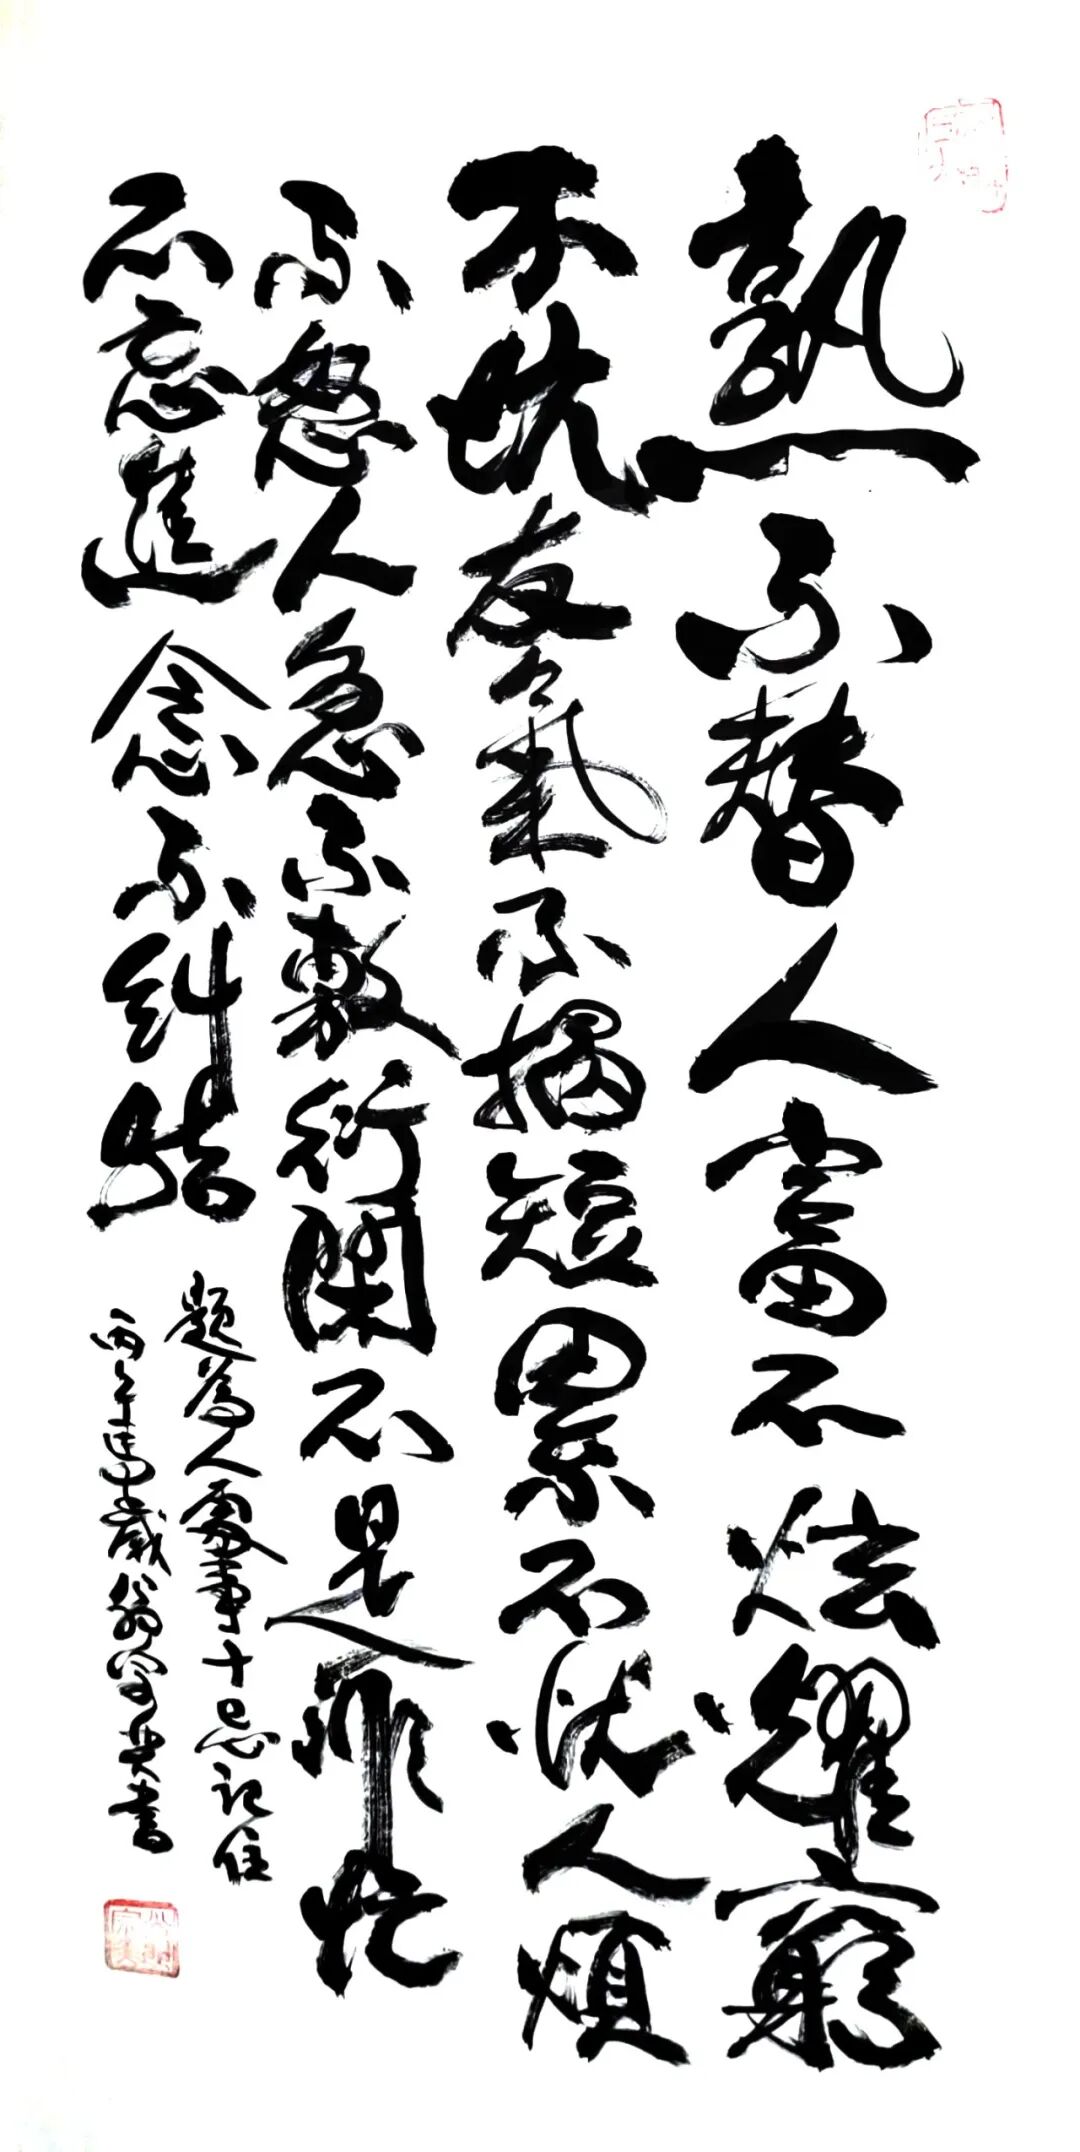 熟不替人富不炫耀窮
不坑友氣不揭短累不忧人煩
不怒人急不敷衍閑不是非忙
不忘進念不糾結
題為人處事十忌記住
丙午馬歲翁書